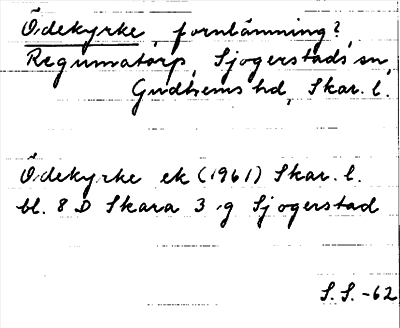 Ödekyrke, fornlämning?,
Regumatorp, Sjogerstads sn,
Gudhems hd, Skar. l.
Ödekyrke ek (1961) Skar. l.
bl. 8 D Skara 3 g Sjogerstad
S. S. -62